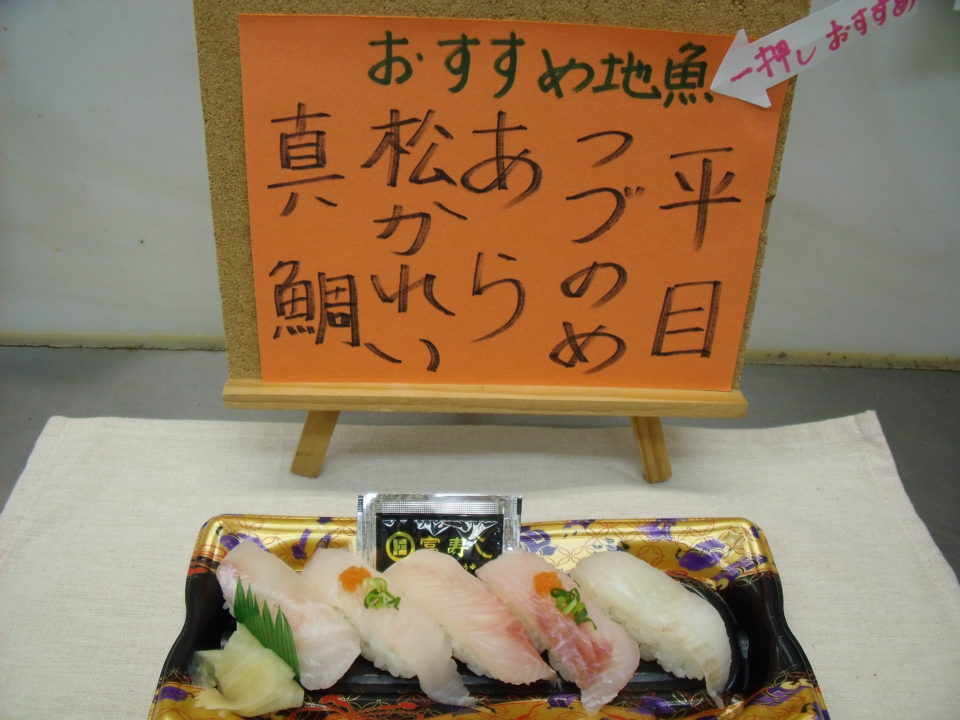 一押し おすすめ
おすすめ地魚
平目
つづのめ
あら
松かれい
真鯛
富寿し